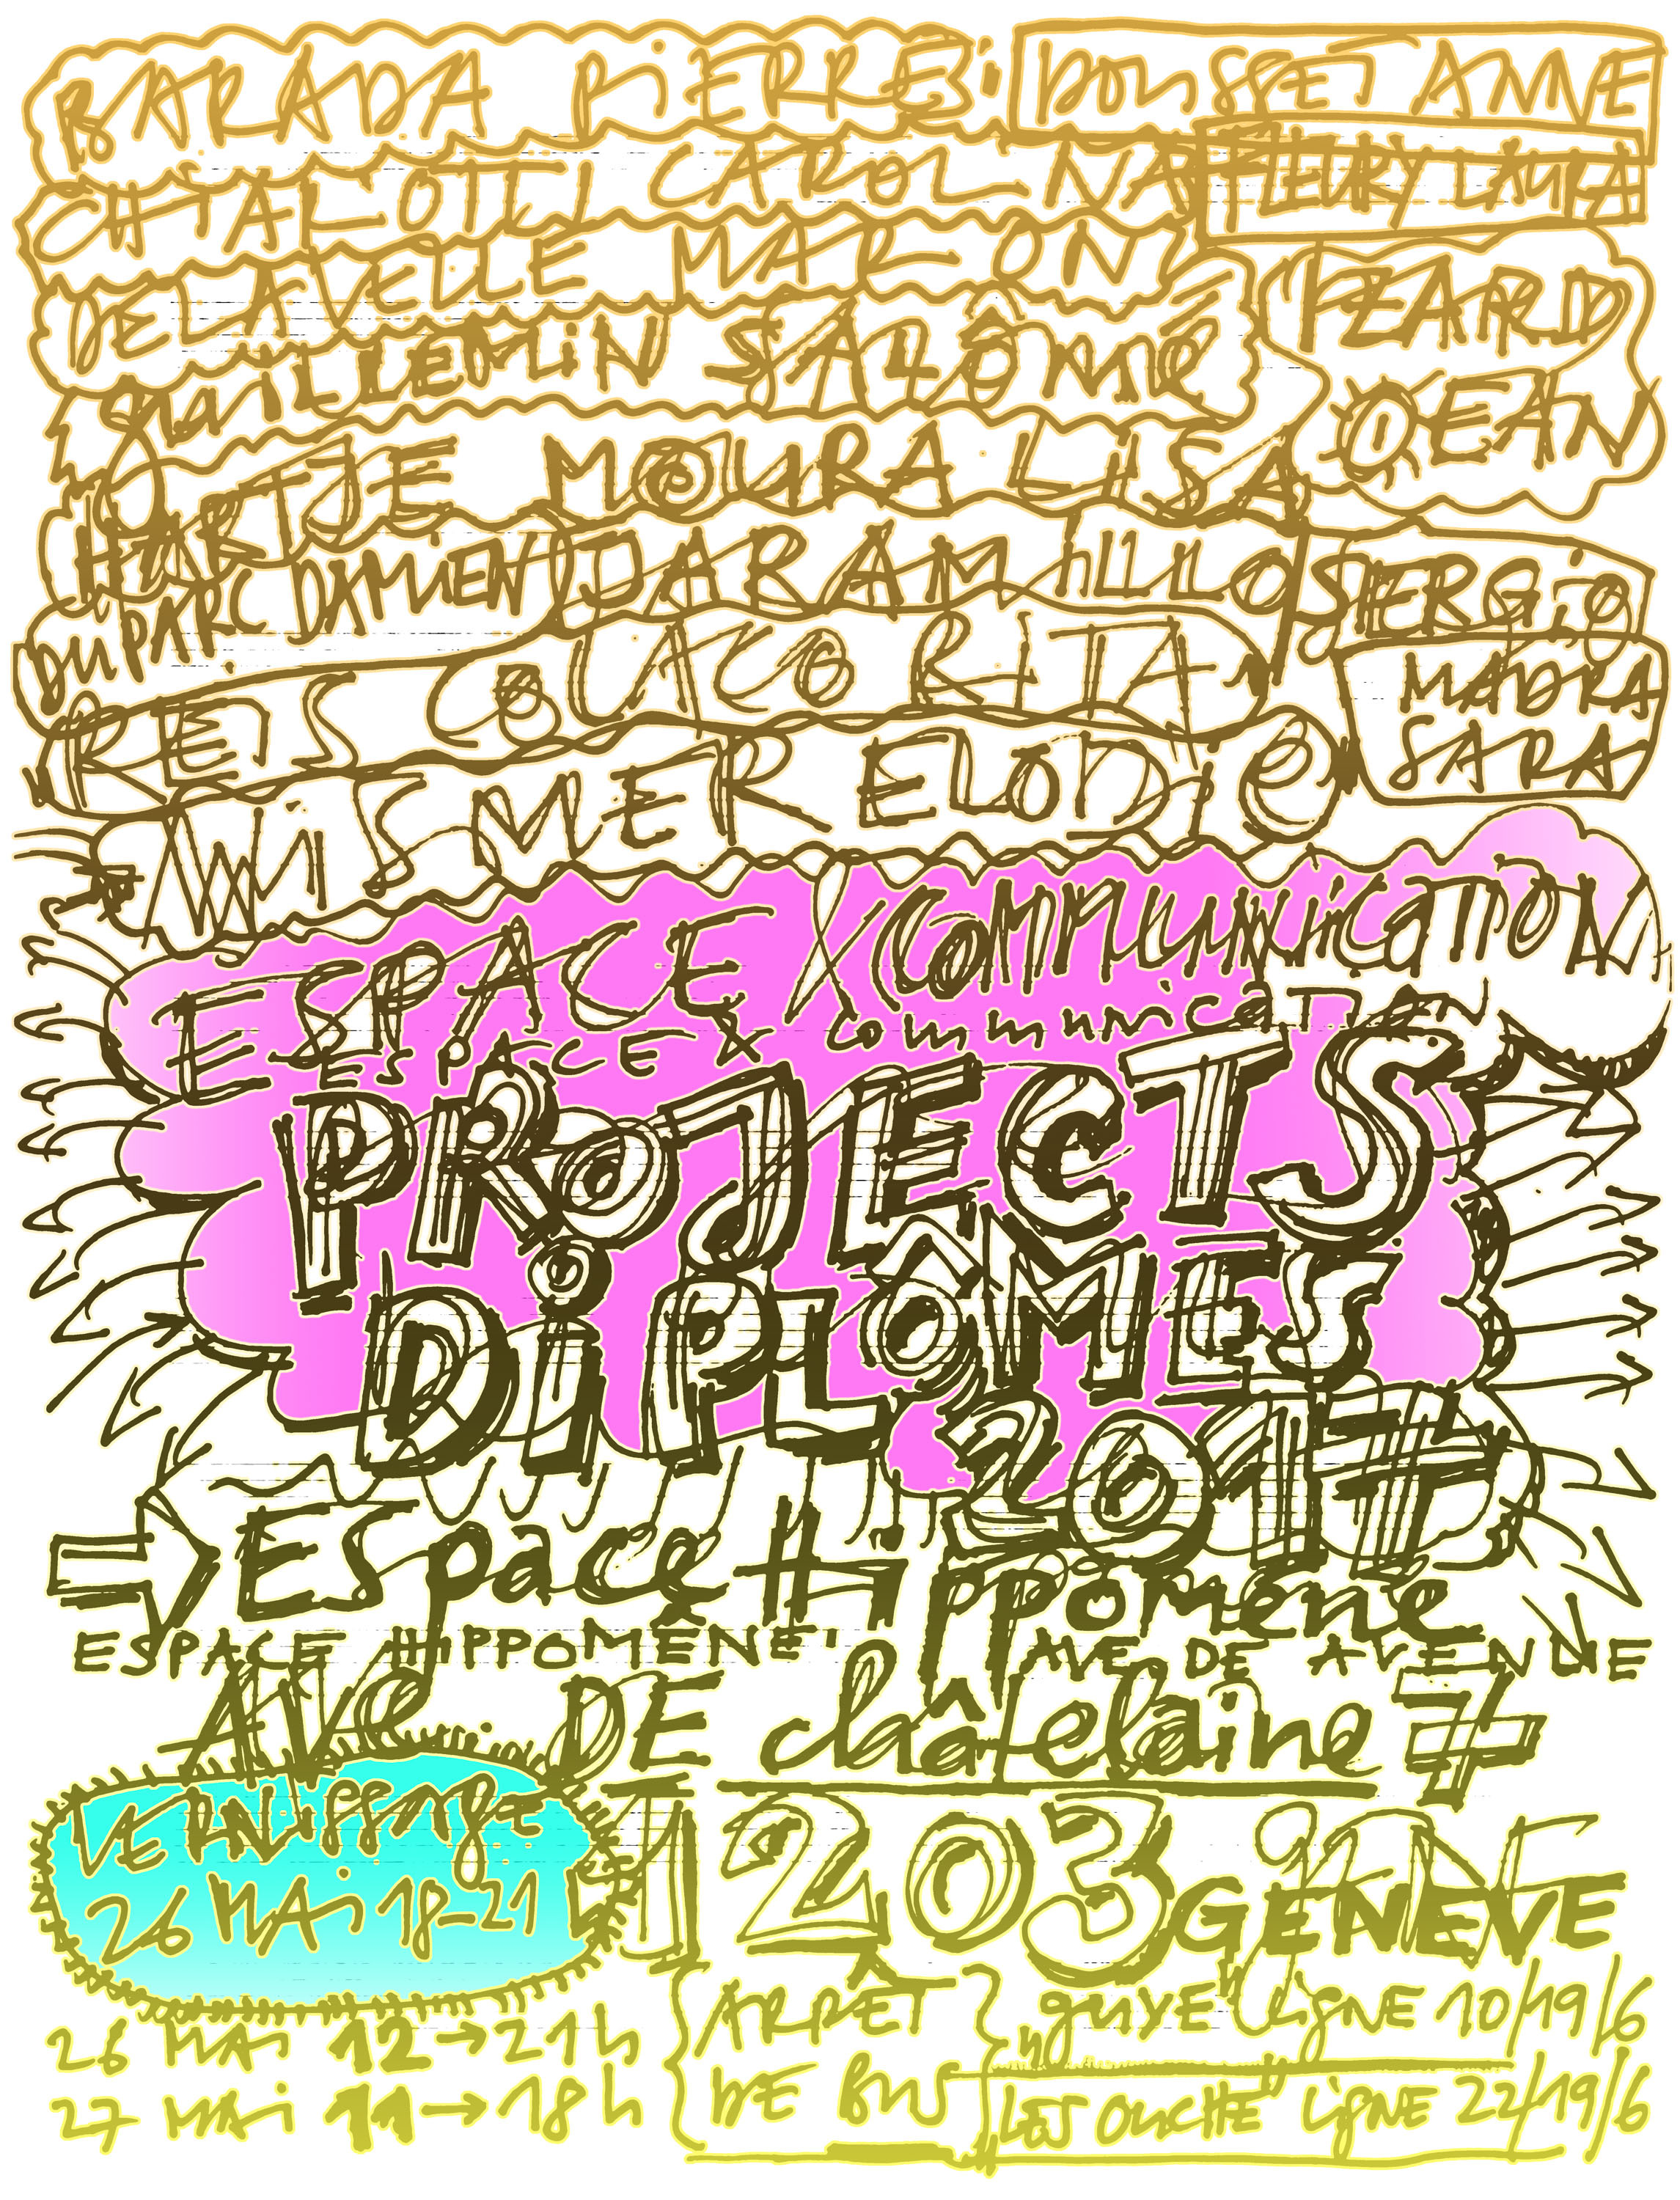 BARADA PIERRE
DOUSSET ANNE
CHIALOTTI CAROLINA
FLEURY LAURA
DELAVELLE MARION
FEARD
OCEAN
GUILLEMIN SALÔMÉ
HARTJE MOURA LISA
DUPARC DAMIEN
JARAMILLO SERGIO
REIS COLACO RITA
MADRA
SARA
WISMER ELODIE
ESPACE & COMMUNICATION
ESPACE & communication
PROJECTS
DIPLÔMES
2017
ESpace Hippomène
ESPACE HIPPOMÈNE AVE DE AVENUE
AVE DE châtelaine 7
VERNISSAGE
26 MAI 18-21
1203 GENEVE
26 MAI 12→21h
27 MAI 11→18h
ARRÊT
DE BUS
"GUYE" LIGNE 10/19/6
"LES OUCHE" LIGNE 22/19/6